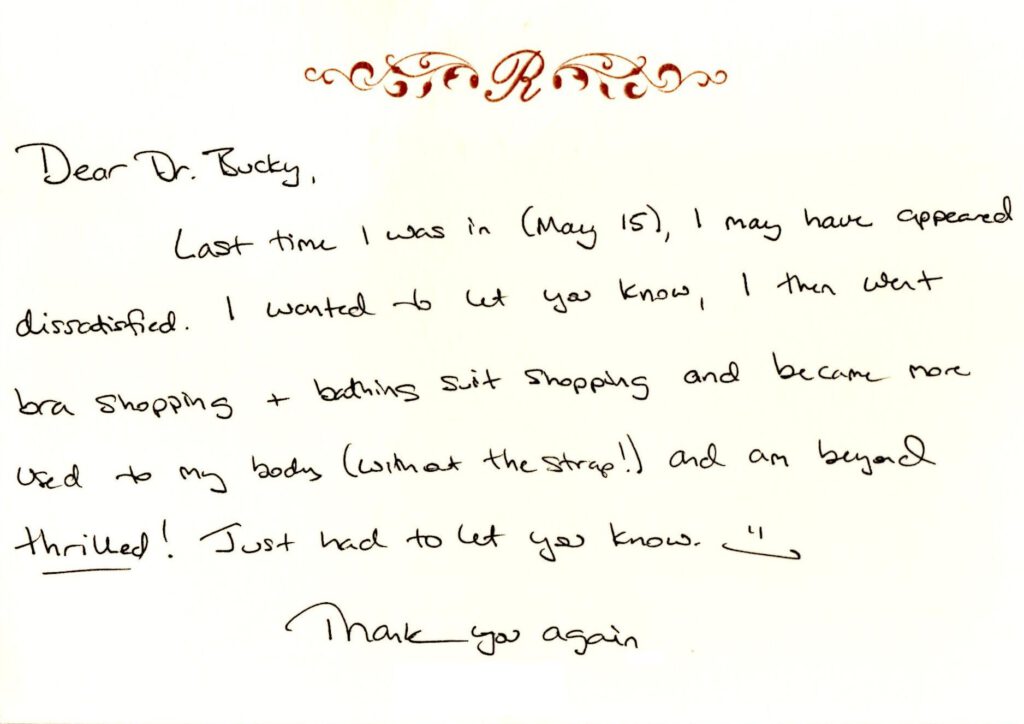 R
Dear Dr. Bucky,
Last time I was in (May 15), I may have appeared
dissatisfied. I wanted to let you know, I then went
bra shopping + bathing suit shopping and became more
used to my body (without the strap!) and am beyond
thrilled! Just had to let you know. :)
Thank you again